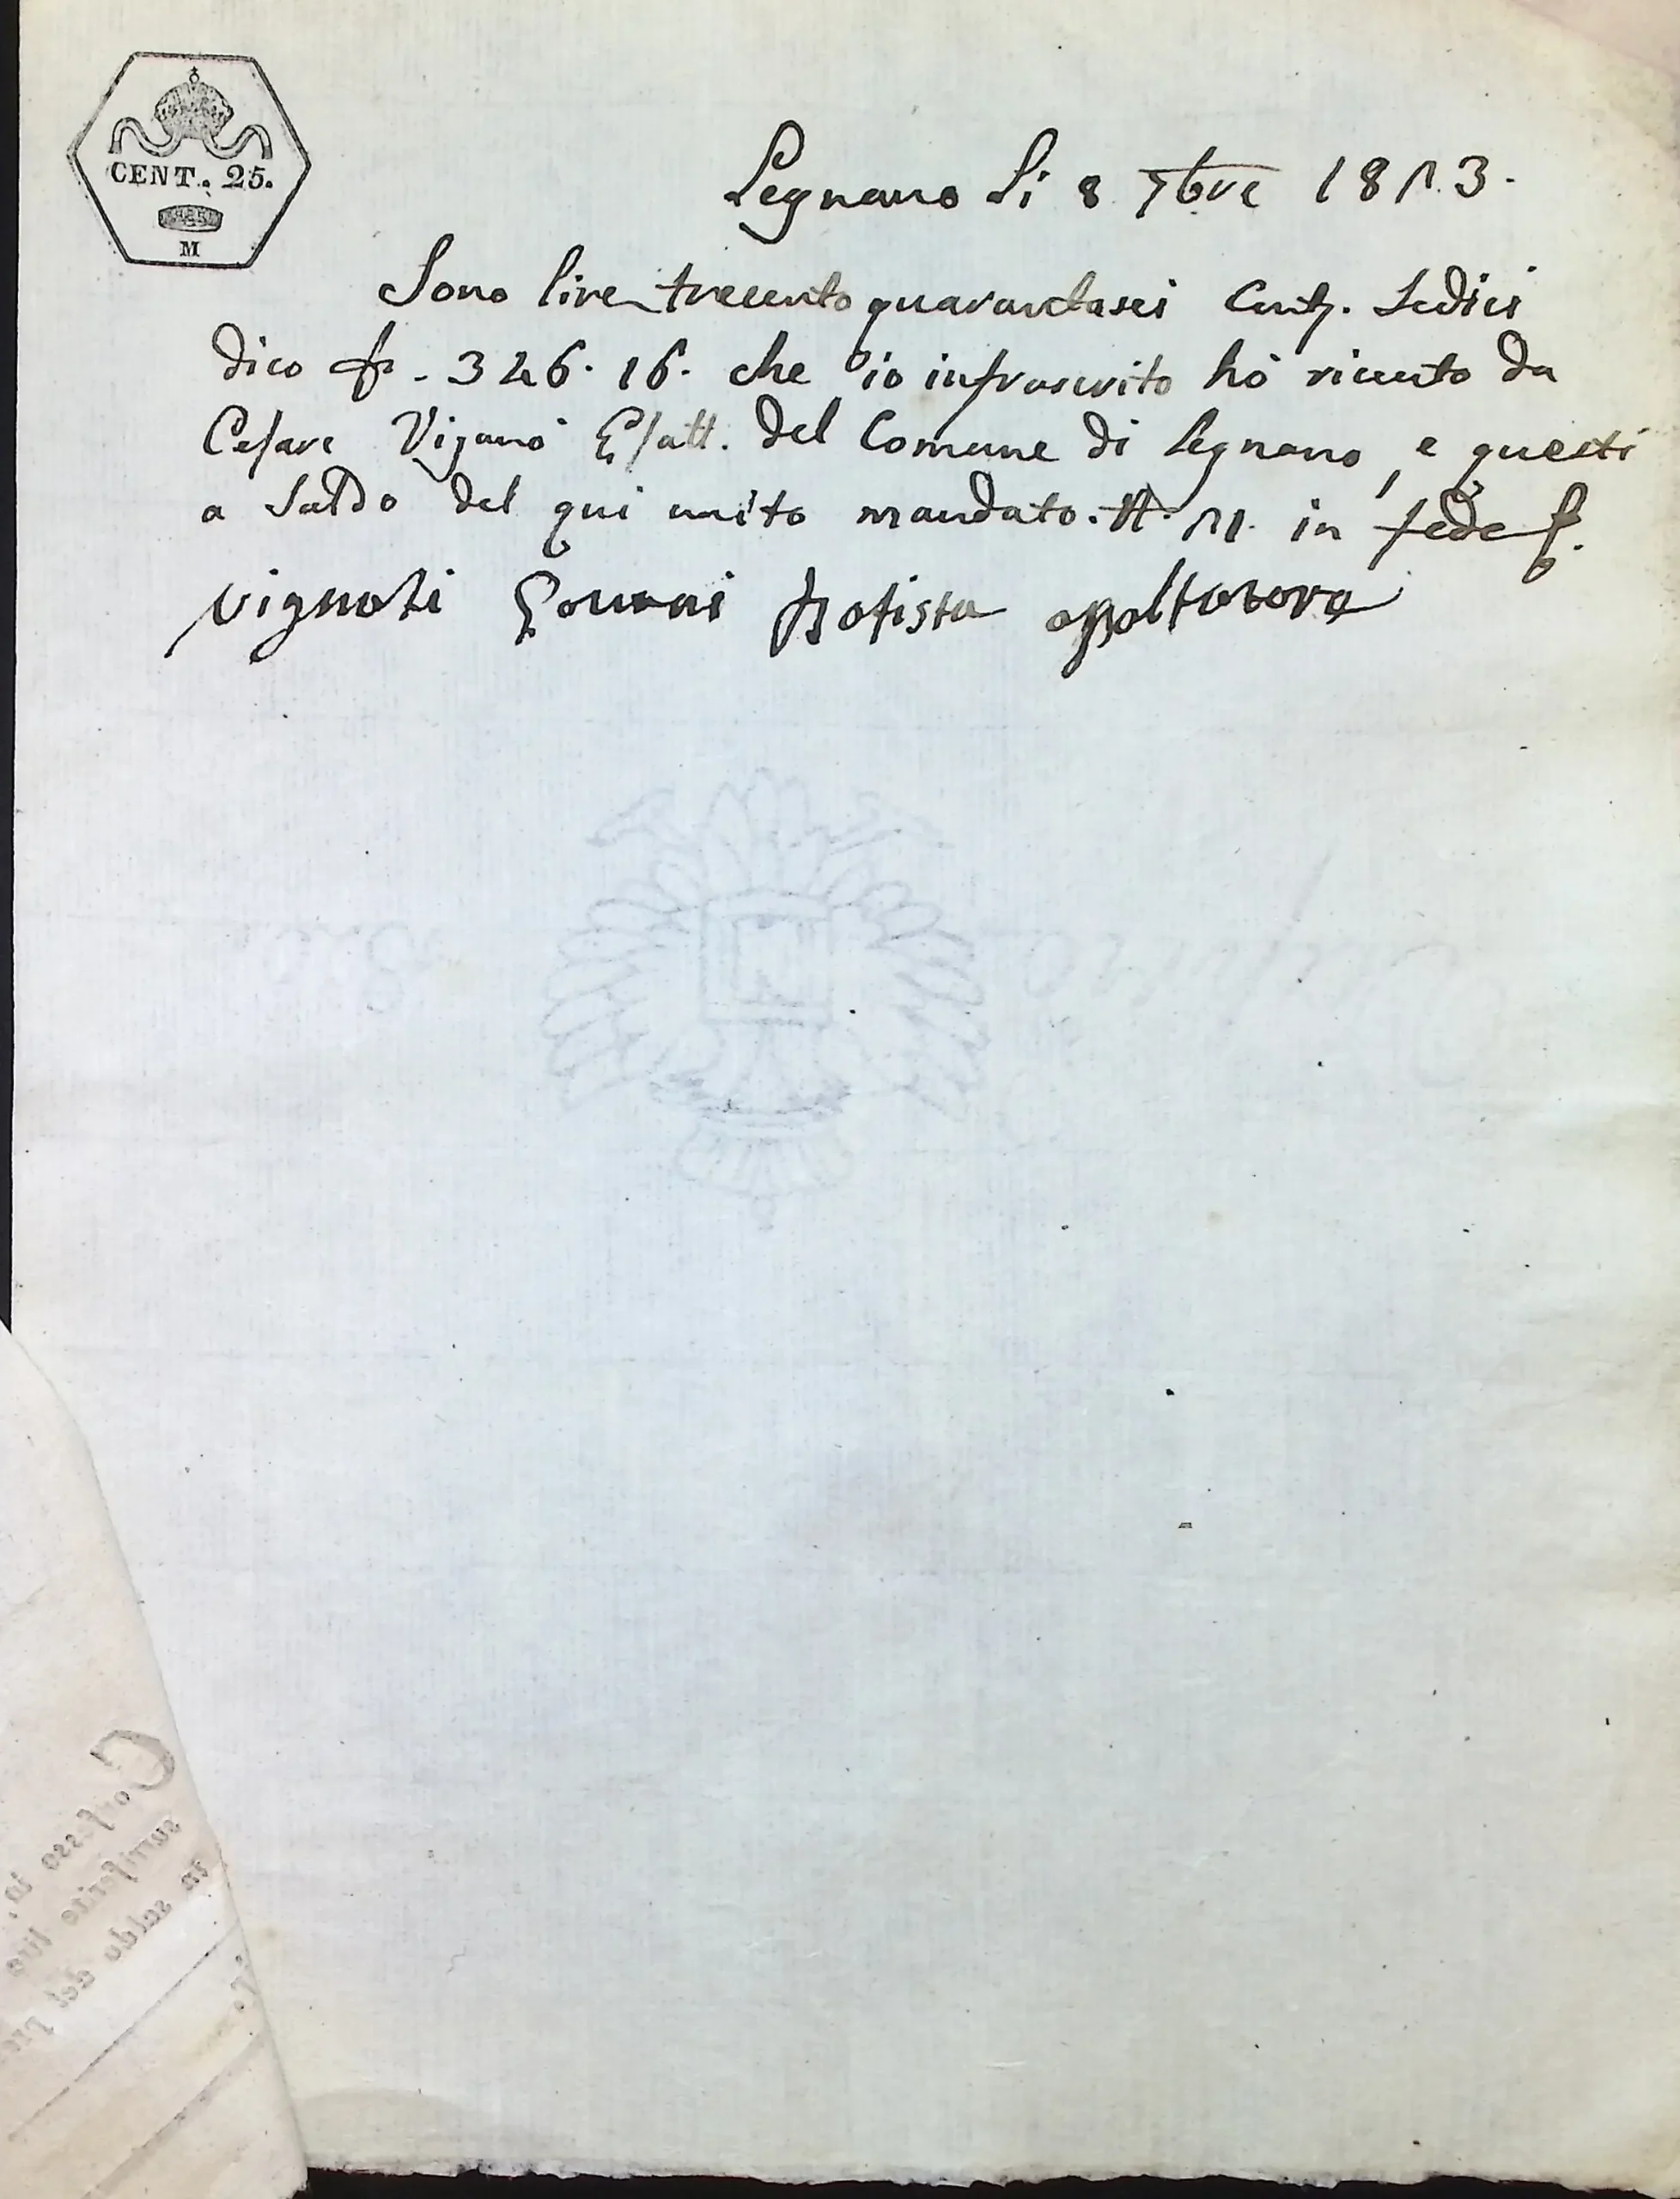 CENT. 25.
M
Legnano Li 8 7bre 1813.
Sono lire trecento quarantasei Cent. Sedici
dico fr. 346. 16. che io infrascritto hò riceuto da
Cesare Viganò Esatt. del Comune di Legnano, e questi
a Saldo del qui unito mandato. N. 11. in fede f.
Vignoti Batista apaltatore
Confesso io,
surriferite lire
in saldo del pre